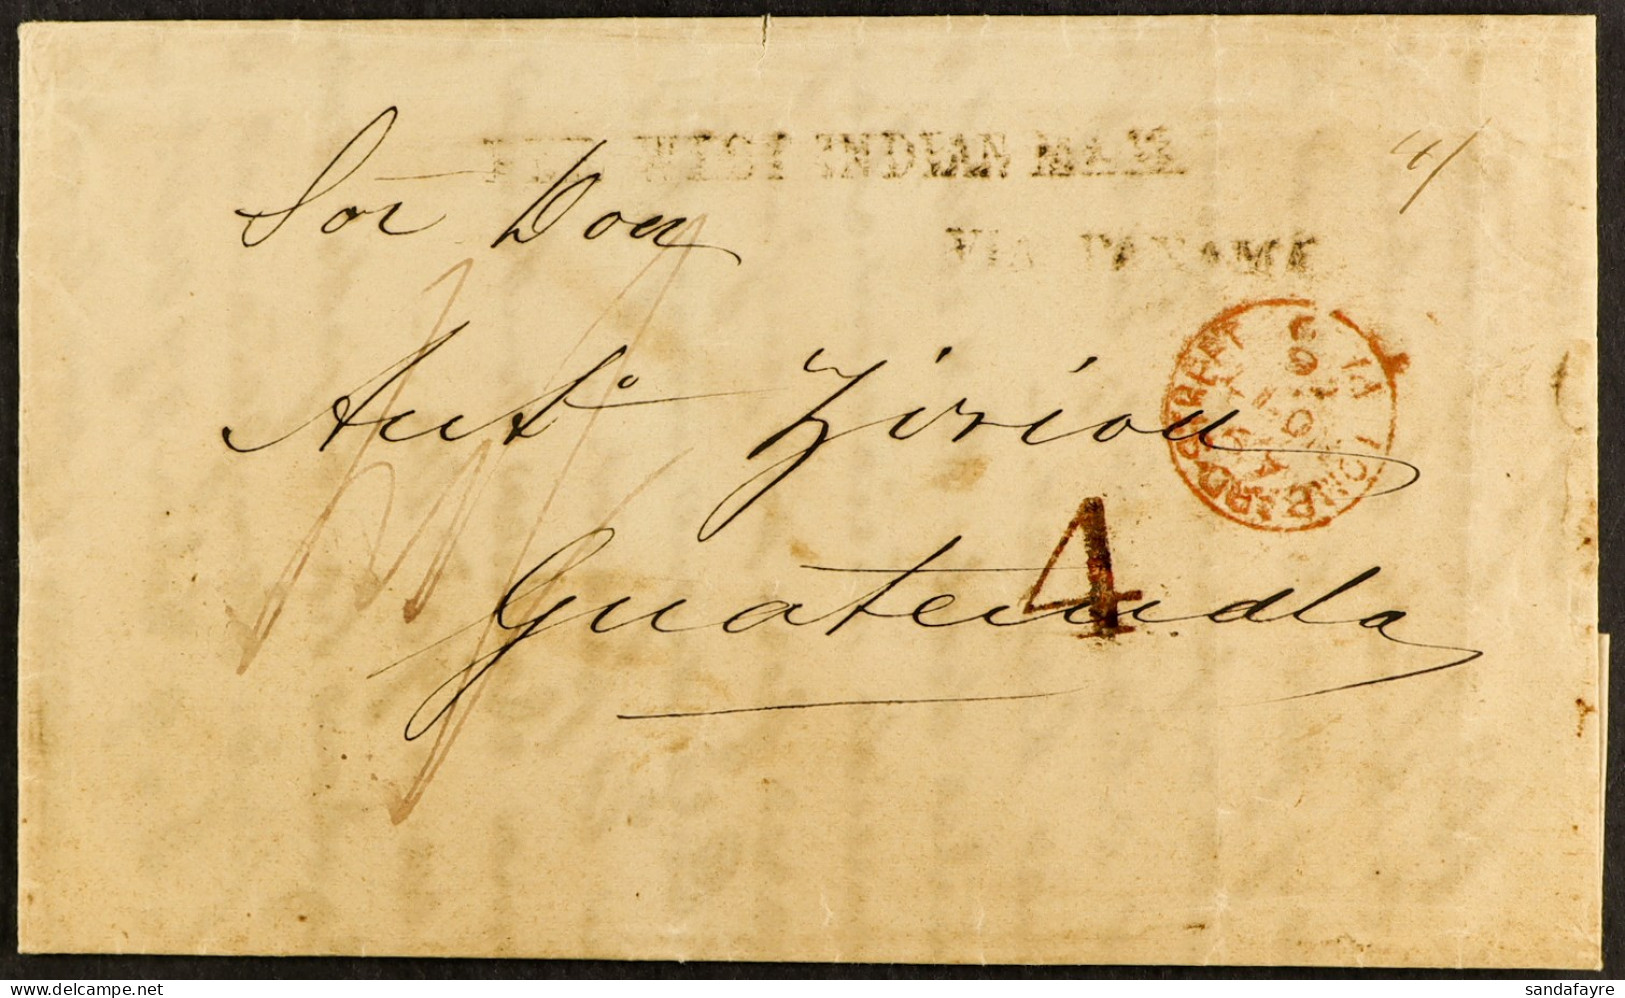 PER WEST INDIAN MAIL
VIA PANAMA
Sor Don
Anto. Zirion
Guatemala
4
LOMBARD STREET
sandafayre